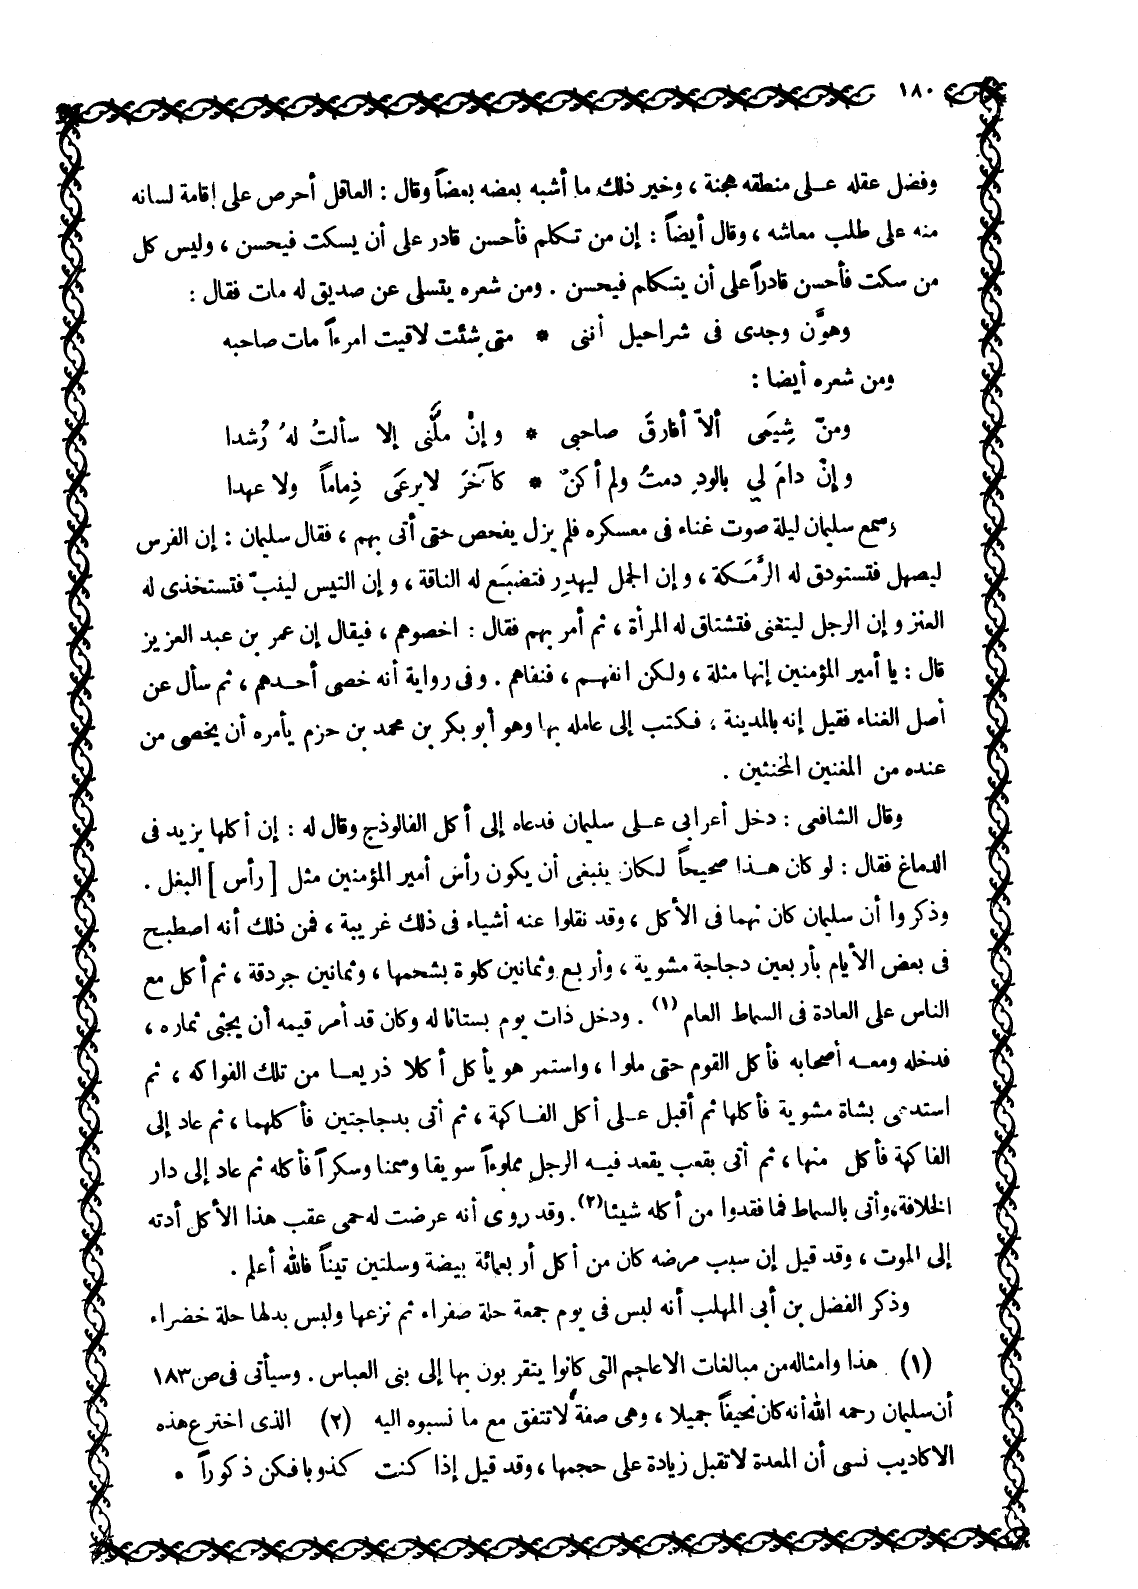 ١٨٠
وفضل عقله على منطقه هجنة ، وخير ذلك ما أشبه بعضه بعضاً وقال : العاقل أحرص على إقامة لسانه
منه على طلب معاشه ، وقال أيضاً : إن من تكلم فأحسن قادر على أن يسكت فيحسن ، وليس كل
من سكت فأحسن قادراً على أن يتكلم فيحسن . ومن شعره يتسلى عن صديق له مات فقال :
وهوَّن وجدى فى شراحيل أننى * متى شئت لاقيت امرءاً مات صاحبه
ومن شعره أيضا :
ومنْ شِيَمى ألاّ أفارقَ صاحبى * وإنْ ملَّنى إلا سألتُ لهُ رُشدا
وإنْ دامَ لي بالودِ دمتُ ولم أكنْ * كآخرَ لا يرعَى ذِماماً ولا عهدا
وسمع سليمان ليلة صوت غناء فى معسكره فلم يزل يفحص حتى أتى بهم ، فقال سليمان : إن الفرس
ليصهل فتستودق له الرَّمَكة ، وإن الجمل ليهدِر فتضبَع له الناقة ، وإن التيس لينبّ فتستخذى له
العنز وإن الرجل ليتغنى فتشتاق له المرأة ، ثم أمر بهم فقال : اخصوهم ، فيقال إن عمر بن عبد العزيز
قال : يا أمير المؤمنين إنها مثلة ، ولكن انفهم ، فنفاهم . وفى رواية أنه خصى أحدهم ، ثم سأل عن
أصل الغناء فقيل إنه بالمدينة ، فكتب إلى عامله بها وهو أبو بكر بن محمد بن حزم يأمره أن يخصى من
عنده من المغنين المخنثين .
وقال الشافعى : دخل أعرابى على سليمان فدعاه إلى أكل الفالوذج وقال له : إن أكلها يزيد فى
الدماغ فقال : لو كان هذا صحيحاً لكان ينبغى أن يكون رأس أمير المؤمنين مثل [ رأس ] البغل .
وذكروا أن سليمان كان نهما فى الأكل ، وقد نقلوا عنه أشياء فى ذلك غريبة ، فمن ذلك أنه اصطبح
فى بعض الأيام بأربعين دجاجة مشوية ، وأربع وثمانين كلوة بشحمها ، وثمانين جردقة ، ثم أكل مع
الناس على العادة فى السماط العام (١) . ودخل ذات يوم بستانا له وكان قد أمر قيمه أن يجنى ثماره ،
فدخله ومعه أصحابه فأكل القوم حتى ملوا ، واستمر هو يأكل أكلا ذريعا من تلك الفواكه ، ثم
استدعى بشاة مشوية فأكلها ثم أقبل على أكل الفاكهة ، ثم أتى بدجاجتين فأكلهما ، ثم عاد إلى
الفاكهة فأكل منها ، ثم أتى بقعب يقعد فيه الرجل مملوءاً سويقا وسمنا وسكراً فأكله ثم عاد إلى دار
الخلافة، وأتى بالسماط فما فقدوا من أكله شيئا (٢) . وقد روى أنه عرضت له حمى عقب هذا الأكل أدته
إلى الموت ، وقد قيل إن سبب مرضه كان من أكل أربعمائة بيضة وسلتين تيناً فالله أعلم .
وذكر الفضل بن أبى المهلب أنه لبس فى يوم جمعة حلة صفراء ثم نزعها ولبس بدلها حلة خضراء
(١) هذا وامثاله من مبالغات الاعاجم التى كانوا يتقربون بها إلى بنى العباس . وسيأتى فى ص ١٨٣
أن سليمان رحمه الله أنه كان نحيفاً جميلا ، وهى صفة لا تتفق مع ما نسبوه اليه (٢) الذى اخترع هذه
الاكاذيب نسى أن المعدة لا تقبل زيادة على حجمها ، وقد قيل إذا كنت كذوبا فكن ذكوراً .